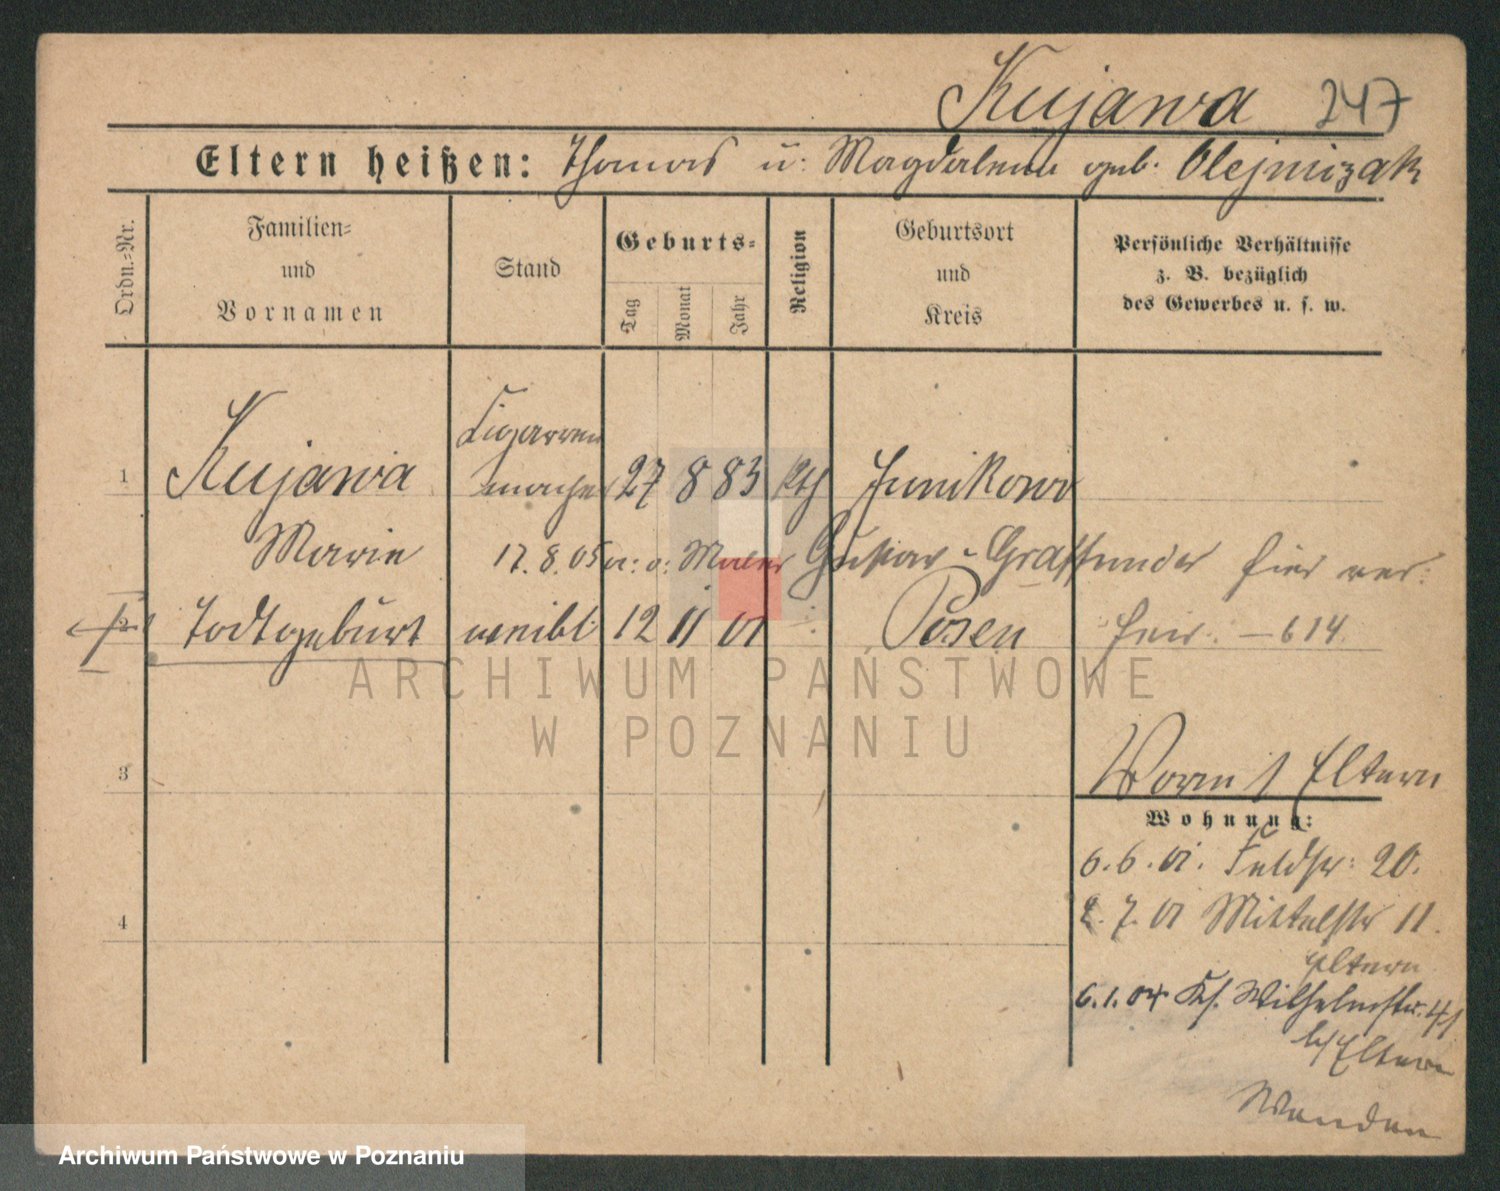 Kujawa 247
Eltern heißen: Thomas u: Magdalena geb. Olejniczak
Ordn.-Nr.
Familien-
und
Vornamen
Stand
Geburts-
Tag
Monat
Jahr
Religion
Geburtsort
und
Kreis
Persönliche Verhältnisse
z. B. bezüglich
des Gewerbes u. s. w.
Cigarren
1 Kujawa macher 27 8 83 kth Junikowo
Marie 17.8.05 Maler Gustav Graffunder hier ver:
2 Todtgeburt weibl: 12 11 01 Posen heir. - 614
ARCHIWUM PAŃSTWOWE
W POZNANIU
3 Eltern
Wohnung:
6.6.01. Feldstr: 20.
2.7.01 Mittelstr 11.
4
Eltern
6.1.04 Ks. Wilhelmstr. 41
b/Eltern
Wenden
Archiwum Państwowe w Poznaniu